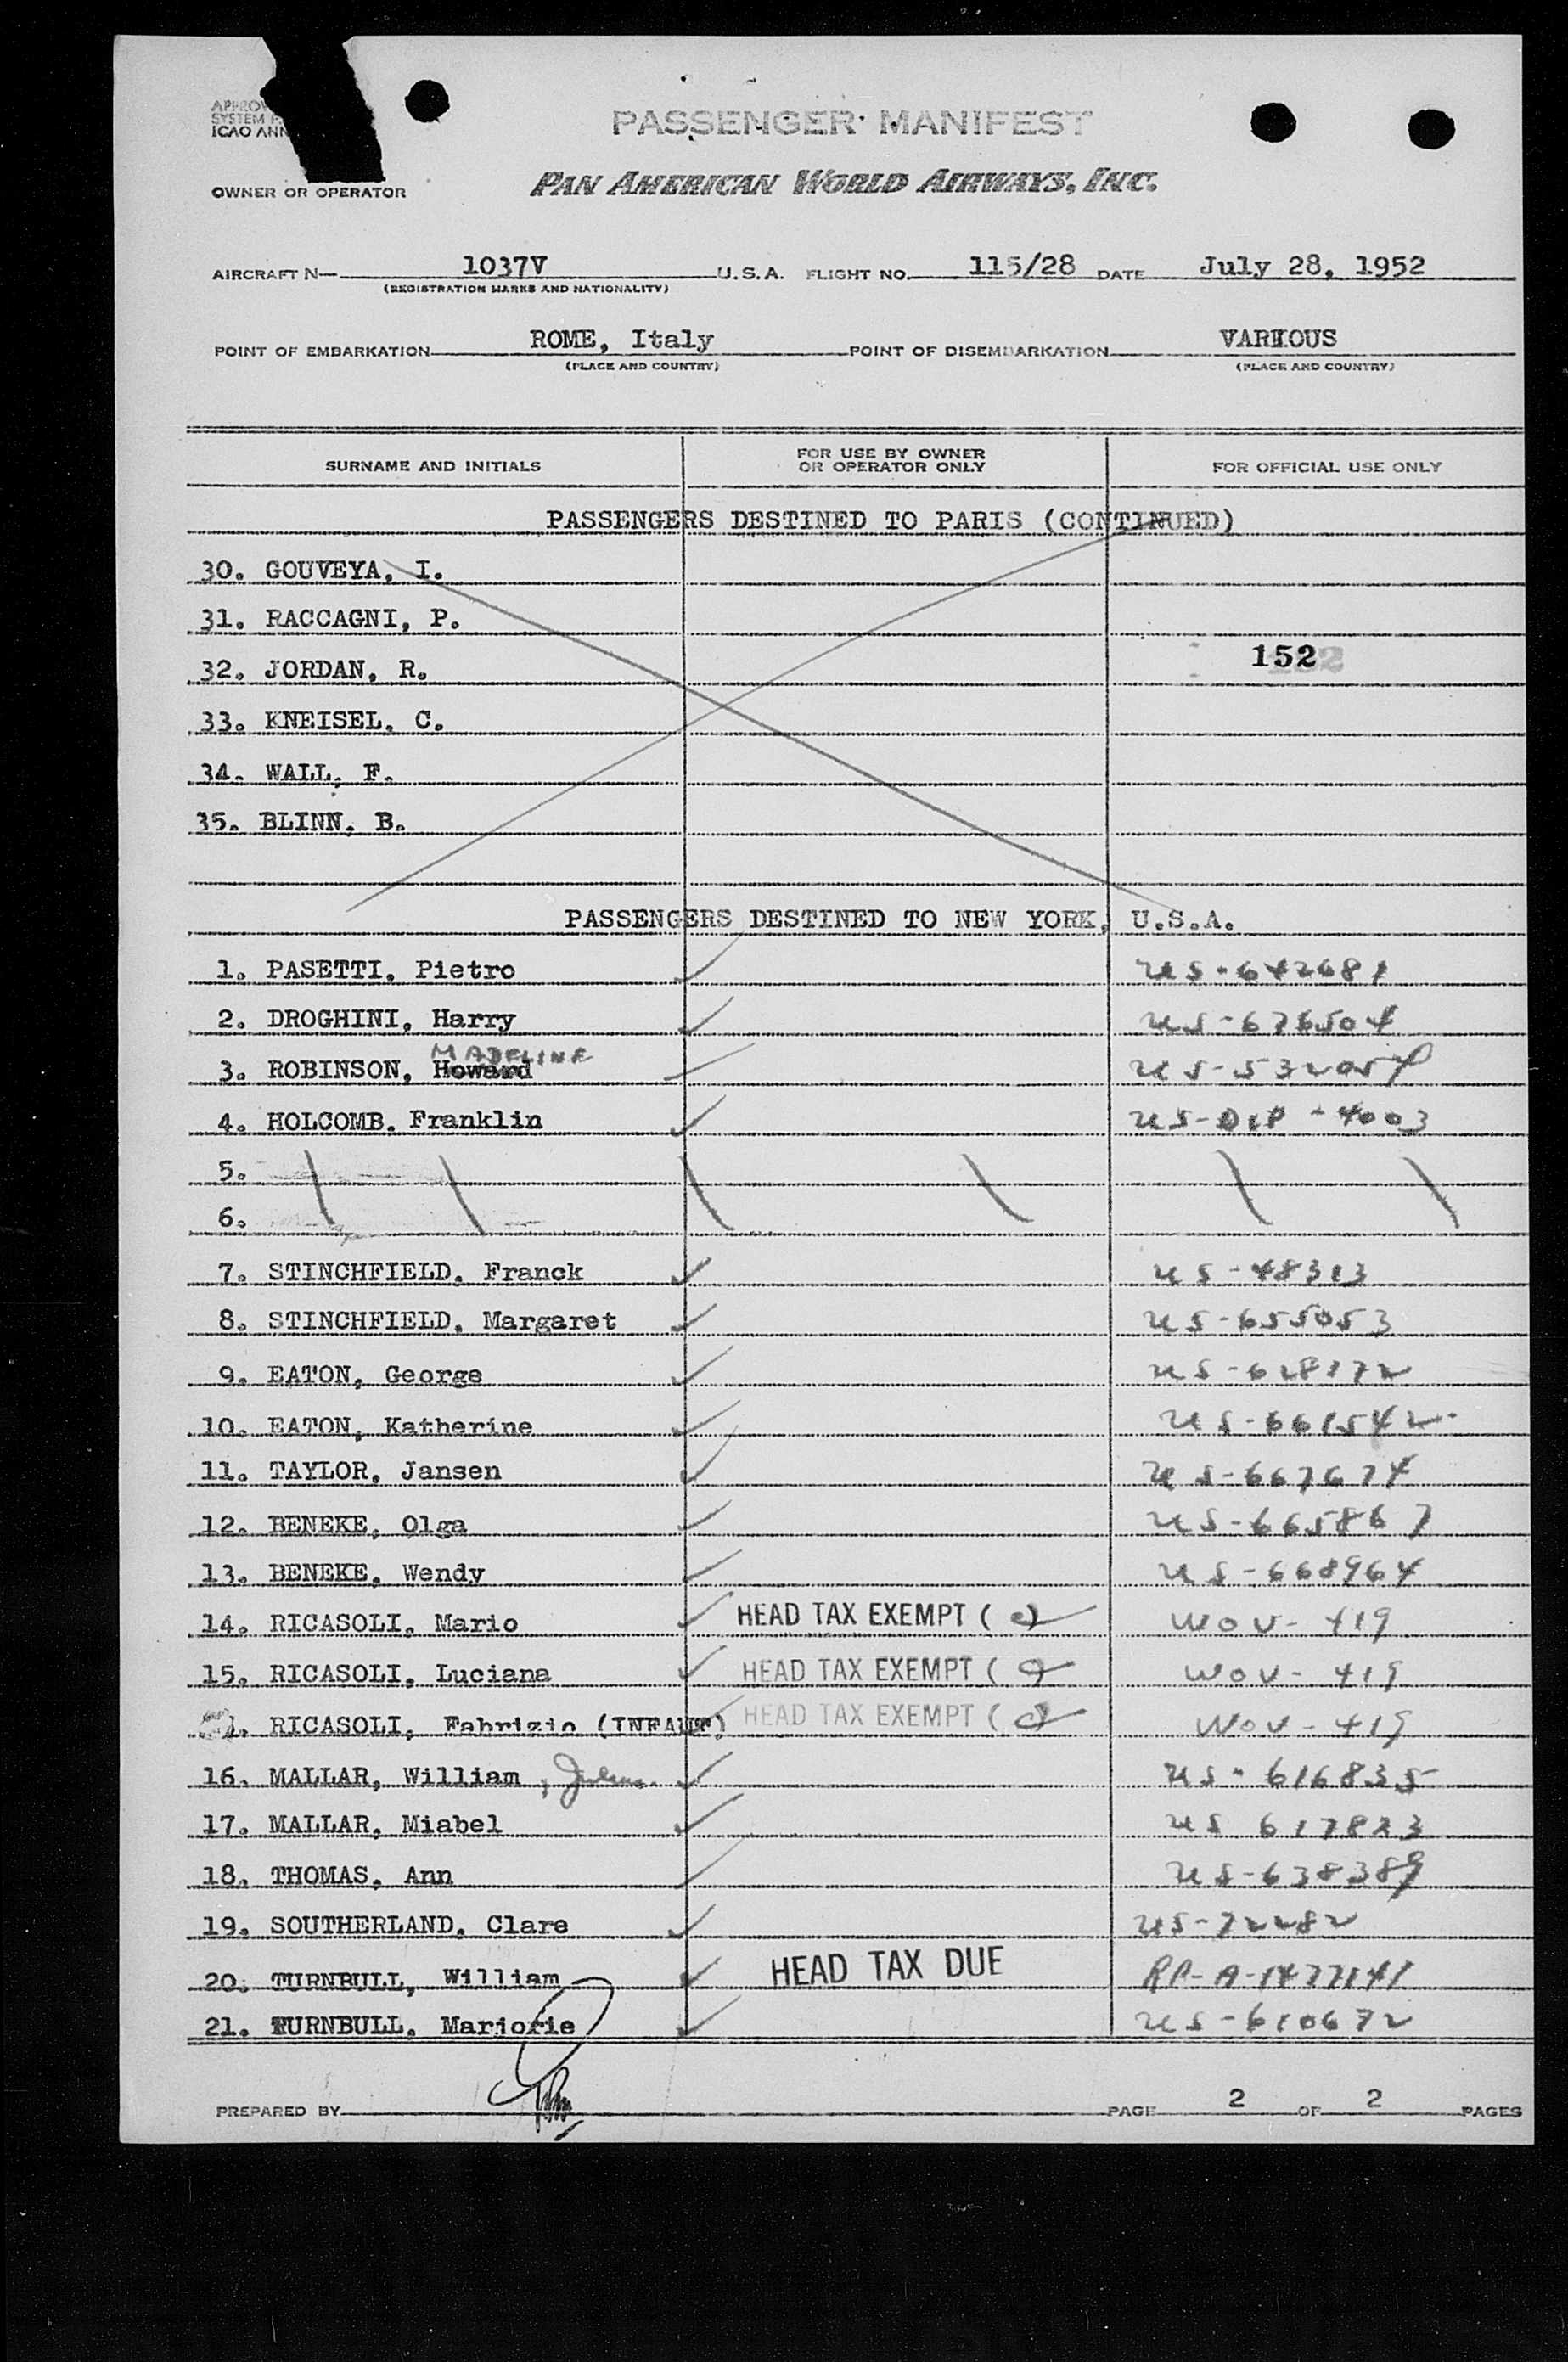 APPROV
SYSTEM F
ICAO ANN
PASSENGER MANIFEST
OWNER OR OPERATOR
PAN AMERICAN WORLD AIRWAYS, INC.
AIRCRAFT N— 1037V U.S.A. FLIGHT NO. 115/28 DATE July 28, 1952
(REGISTRATION MARKS AND NATIONALITY)
POINT OF EMBARKATION ROME, Italy POINT OF DISEMBARKATION VARIOUS
(PLACE AND COUNTRY) (PLACE AND COUNTRY)
SURNAME AND INITIALS FOR USE BY OWNER OR OPERATOR ONLY FOR OFFICIAL USE ONLY
PASSENGERS DESTINED TO PARIS (CONTINUED)
30. GOUVEYA, I.
31. RACCAGNI, P.
32. JORDAN, R. 152
33. KNEISEL, C.
34. WALL, F.
35. BLINN, B.
PASSENGERS DESTINED TO NEW YORK, U.S.A.
1. PASETTI, Pietro US-642681
2. DROGHINI, Harry US-676504
MADELINE
3. ROBINSON, Howard US-532054
4. HOLCOMB, Franklin US-DIP-4003
5.
6.
7. STINCHFIELD, Franck US-48313
8. STINCHFIELD, Margaret US-655053
9. EATON, George US-628172
10. EATON, Katherine US-661542
11. TAYLOR, Jansen US-667674
12. BENEKE, Olga US-665867
13. BENEKE, Wendy US-668964
14. RICASOLI, Mario HEAD TAX EXEMPT ( ) WOV-419
15. RICASOLI, Luciana HEAD TAX EXEMPT ( WOV-419
RICASOLI, Fabrizio (INFANT) HEAD TAX EXEMPT ( ) WOV-419
16. MALLAR, William US-616835
17. MALLAR, Miabel US 617823
18. THOMAS, Ann US-638389
19. SOUTHERLAND, Clare US-72282
20. TURNBULL, William HEAD TAX DUE RP-A-1477141
21. TURNBULL, Marjorie US-610672
PREPARED BY PAGE 2 OF 2 PAGES